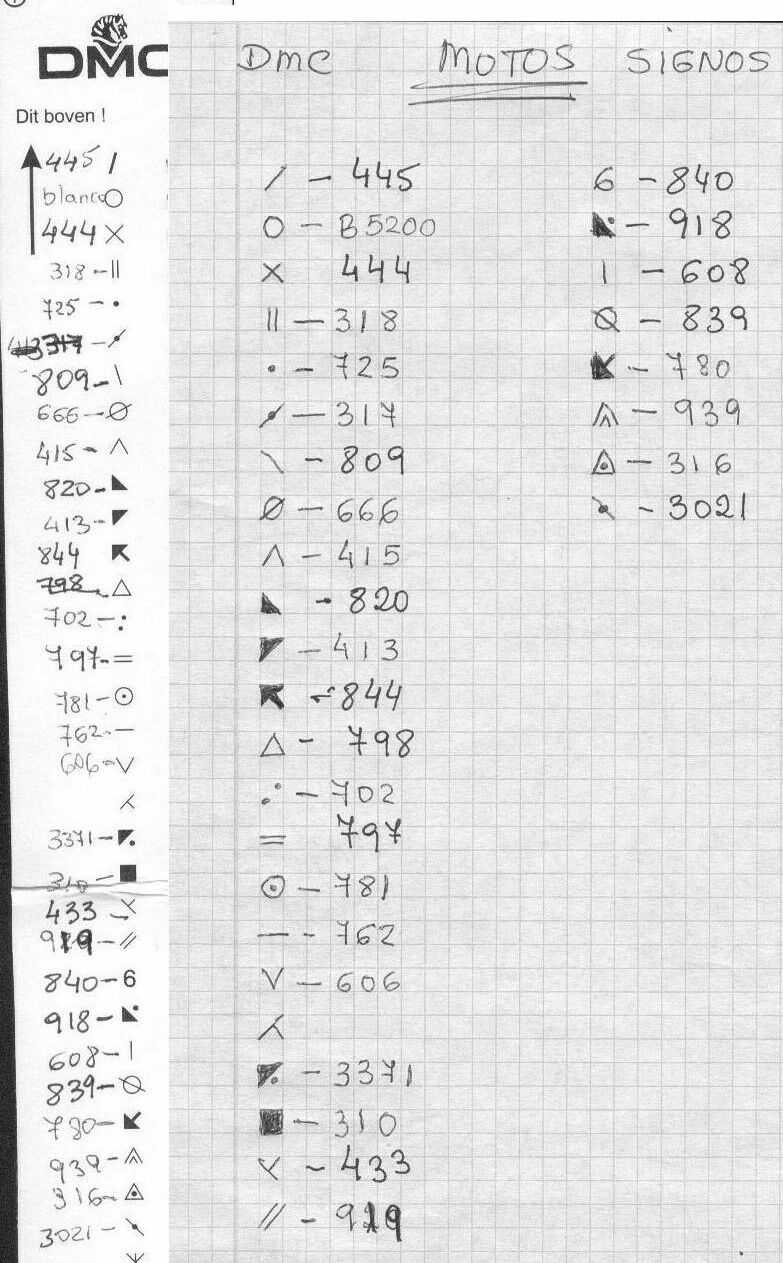 DMC
Dit boven !
445 /
blanco O
444 X
318 - ||
725 - •
317 -
809 - \
666 - Ø
415 - ^
820 - ◣
413 - ◤
844 ↖
798 - △
702 - :
797 - =
781 - ⊙
762 - —
606 - V
3371 -
310 - ■
433 -
919 - //
840 - 6
918 -
608 - |
839 -
780 - ↙
939 -
316 -
3021 -
DMC MOTOS SIGNOS
/ - 445
O - B5200
X 444
|| - 318
• - 725
- 317
\ - 809
Ø - 666
^ - 415
◣ - 820
◤ - 413
↖ - 844
△ - 798
- 702
= 797
⊙ - 781
— - 762
V - 606
- 3371
■ - 310
- 433
// - 919
6 - 840
- 918
| - 608
- 839
↙ - 780
- 939
- 316
- 3021